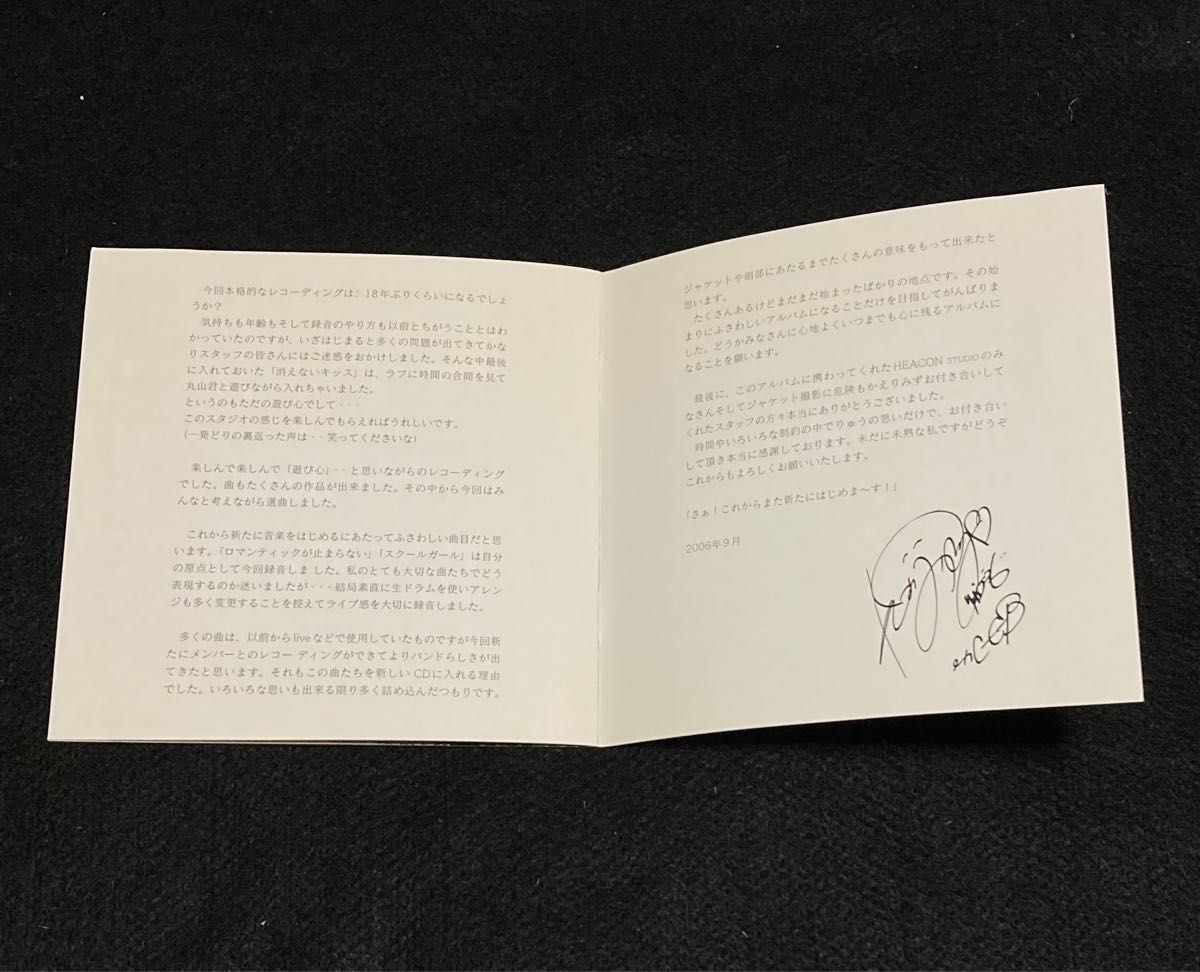 今回本格的なレコーディングは、18年ぶりくらいになるでしょ
うか？
気持ちも年齢もそして録音のやり方も以前とちがうこととはわ
かっていたのですが、いざはじまると多くの問題が出てきてかな
りスタッフの皆さんにはご迷惑をおかけしました。そんな中最後
に入れておいた「消えないキッス」は、ラフに時間の合間を見て
丸山君と遊びながら入れちゃいました。
というのもただの遊び心でして・・・
このスタジオの感じを楽しんでもらえればうれしいです。
(一発どりの裏返った声は・・笑ってくださいな)
楽しんで楽しんで「遊び心」・・と思いながらのレコーディング
でした。曲もたくさんの作品が出来ました。その中から今回はみ
んなと考えながら選曲しました。
これから新たに音楽をはじめるにあたってふさわしい曲目だと思
います。「ロマンティックが止まらない」「スクールガール」は自分
の原点として今回録音しま した。私のとても大切な曲たちでどう
表現するのか迷いましたが・・・結局素直に生ドラムを使いアレン
ジも多く変更することを控えてライブ感を大切に録音しました。
多くの曲は、以前からliveなどで使用していたものですが今回新
たにメンバーとのレコー ディングができてよりバンドらしさが出
てきたと思います。それもこの曲たちを新しいCDに入れる理由
でした。いろいろな思いも出来る限り多く詰め込んだつもりです。
ジャケットや細部にあたるまでたくさんの意味をもって出来たと
思います。
たくさんあるけどまだまだ始まったばかりの地点です。その始
まりにふさわしいアルバムになることだけを目指してがんばりま
した。どうかみなさんに心地よくいつまでも心に残るアルバムに
なることを願います。
最後に、このアルバムに携わってくれたHEACON STUDIOのみ
なさんそしてジャケット撮影に危険もかえりみずお付き合いして
くれたスタッフの方々本当にありがとうございました。
時間やいろいろな制約の中でりゅうの思いだけで、お付き合い
して頂き本当に感謝しております。未だに未熟な私ですがどうぞ
これからもよろしくお願いいたします。
「さぁ！これからまた新たにはじめま～す！」
2006年9月